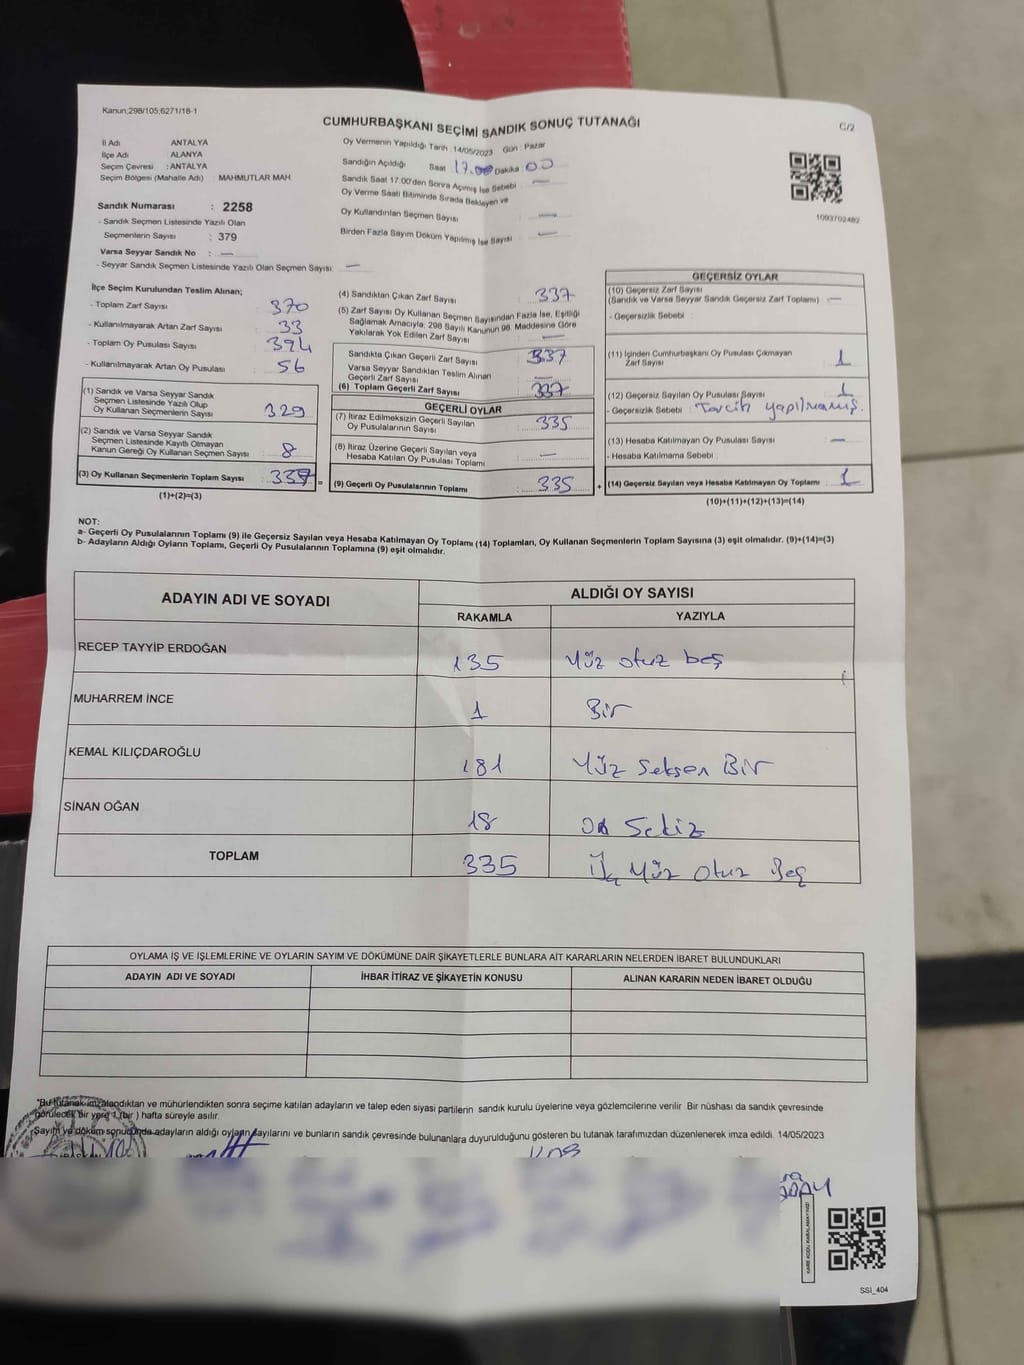 Kanun;298/105;6271/18-1
CUMHURBAŞKANI SEÇİMİ SANDIK SONUÇ TUTANAĞI
C/2
İl Adı ANTALYA
İlçe Adı ALANYA
Seçim Çevresi : ANTALYA
Seçim Bölgesi (Mahalle Adı) : MAHMUTLAR MAH.
Sandık Numarası : 2258
- Sandık Seçmen Listesinde Yazılı Olan
Seçmenlerin Sayısı : 379
Varsa Seyyar Sandık No : —
- Seyyar Sandık Seçmen Listesinde Yazılı Olan Seçmen Sayısı: —
Oy Vermenin Yapıldığı Tarih :14/05/2023 Gün : Pazar
Sandığın Açıldığı Saat : 17.00 Dakika : 00
Sandık Saat 17.00'den Sonra Açılmış İse Sebebi : —
Oy Verme Saati Bitiminde Sırada Bekleyen ve
Oy Kullandırılan Seçmen Sayısı : —
Birden Fazla Sayım Döküm Yapılmış İse Sayısı : —
1093702482
İlçe Seçim Kurulundan Teslim Alınan;
- Toplam Zarf Sayısı : 370
- Kullanılmayarak Artan Zarf Sayısı : 33
- Toplam Oy Pusulası Sayısı : 394
- Kullanılmayarak Artan Oy Pusulası : 56
(1) Sandık ve Varsa Seyyar Sandık
Seçmen Listesinde Yazılı Olup
Oy Kullanan Seçmenlerin Sayısı : 329
(2) Sandık ve Varsa Seyyar Sandık
Seçmen Listesinde Kayıtlı Olmayan
Kanun Gereği Oy Kullanan Seçmen Sayısı : 8
(3) Oy Kullanan Seçmenlerin Toplam Sayısı : 337 =
(1)+(2)=(3)
(4) Sandıktan Çıkan Zarf Sayısı : 337
(5) Zarf Sayısı Oy Kullanan Seçmen Sayısından Fazla İse, Eşitliği
Sağlamak Amacıyla; 298 Sayılı Kanunun 98. Maddesine Göre
Yakılarak Yok Edilen Zarf Sayısı : —
Sandıkta Çıkan Geçerli Zarf Sayısı : 337
Varsa Seyyar Sandıktan Teslim Alınan
Geçerli Zarf Sayısı : —
(6) Toplam Geçerli Zarf Sayısı : 337
GEÇERLİ OYLAR
(7) İtiraz Edilmeksizin Geçerli Sayılan
Oy Pusulalarının Sayısı : 335
(8) İtiraz Üzerine Geçerli Sayılan veya
Hesaba Katılan Oy Pusulası Toplamı : —
(9) Geçerli Oy Pusulalarının Toplamı : 335 +
GEÇERSİZ OYLAR
(10) Geçersiz Zarf Sayısı
(Sandık ve Varsa Seyyar Sandık Geçersiz Zarf Toplamı) : —
- Geçersizlik Sebebi :
(11) İçinden Cumhurbaşkanı Oy Pusulası Çıkmayan
Zarf Sayısı : 1
(12) Geçersiz Sayılan Oy Pusulası Sayısı : 1
- Geçersizlik Sebebi : Tercih yapılmamış.
(13) Hesaba Katılmayan Oy Pusulası Sayısı : —
- Hesaba Katılmama Sebebi :
(14) Geçersiz Sayılan veya Hesaba Katılmayan Oy Toplamı : 1
(10)+(11)+(12)+(13)=(14)
NOT:
a- Geçerli Oy Pusulalarının Toplamı (9) ile Geçersiz Sayılan veya Hesaba Katılmayan Oy Toplamı (14) Toplamları, Oy Kullanan Seçmenlerin Toplam Sayısına (3) eşit olmalıdır. (9)+(14)=(3)
b- Adayların Aldığı Oyların Toplamı, Geçerli Oy Pusulalarının Toplamına (9) eşit olmalıdır.
ADAYIN ADI VE SOYADI ALDIĞI OY SAYISI
RAKAMLA YAZIYLA
RECEP TAYYİP ERDOĞAN 135 Yüz otuz beş
MUHARREM İNCE 1 Bir
KEMAL KILIÇDAROĞLU 181 Yüz Seksen Bir
SİNAN OĞAN 18 On Sekiz
TOPLAM 335 Üç Yüz Otuz Beş
OYLAMA İŞ VE İŞLEMLERİNE VE OYLARIN SAYIM VE DÖKÜMÜNE DAİR ŞİKAYETLERLE BUNLARA AİT KARARLARIN NELERDEN İBARET BULUNDUKLARI
ADAYIN ADI VE SOYADI İHBAR İTİRAZ VE ŞİKAYETİN KONUSU ALINAN KARARIN NEDEN İBARET OLDUĞU
"Bu tutanak imzalandıktan ve mühürlendikten sonra seçime katılan adayların ve talep eden siyasi partilerin sandık kurulu üyelerine veya gözlemcilerine verilir. Bir nüshası da sandık çevresinde
görülecek bir yere 1 (bir) hafta süreyle asılır.
Sayım ve döküm sonucunda adayların aldığı oyların sayılarını ve bunların sandık çevresinde bulunanlara duyurulduğunu gösteren bu tutanak tarafımızdan düzenlenerek imza edildi. 14/05/2023
KARE KODU KARALAMAYINIZ!
SSI_404